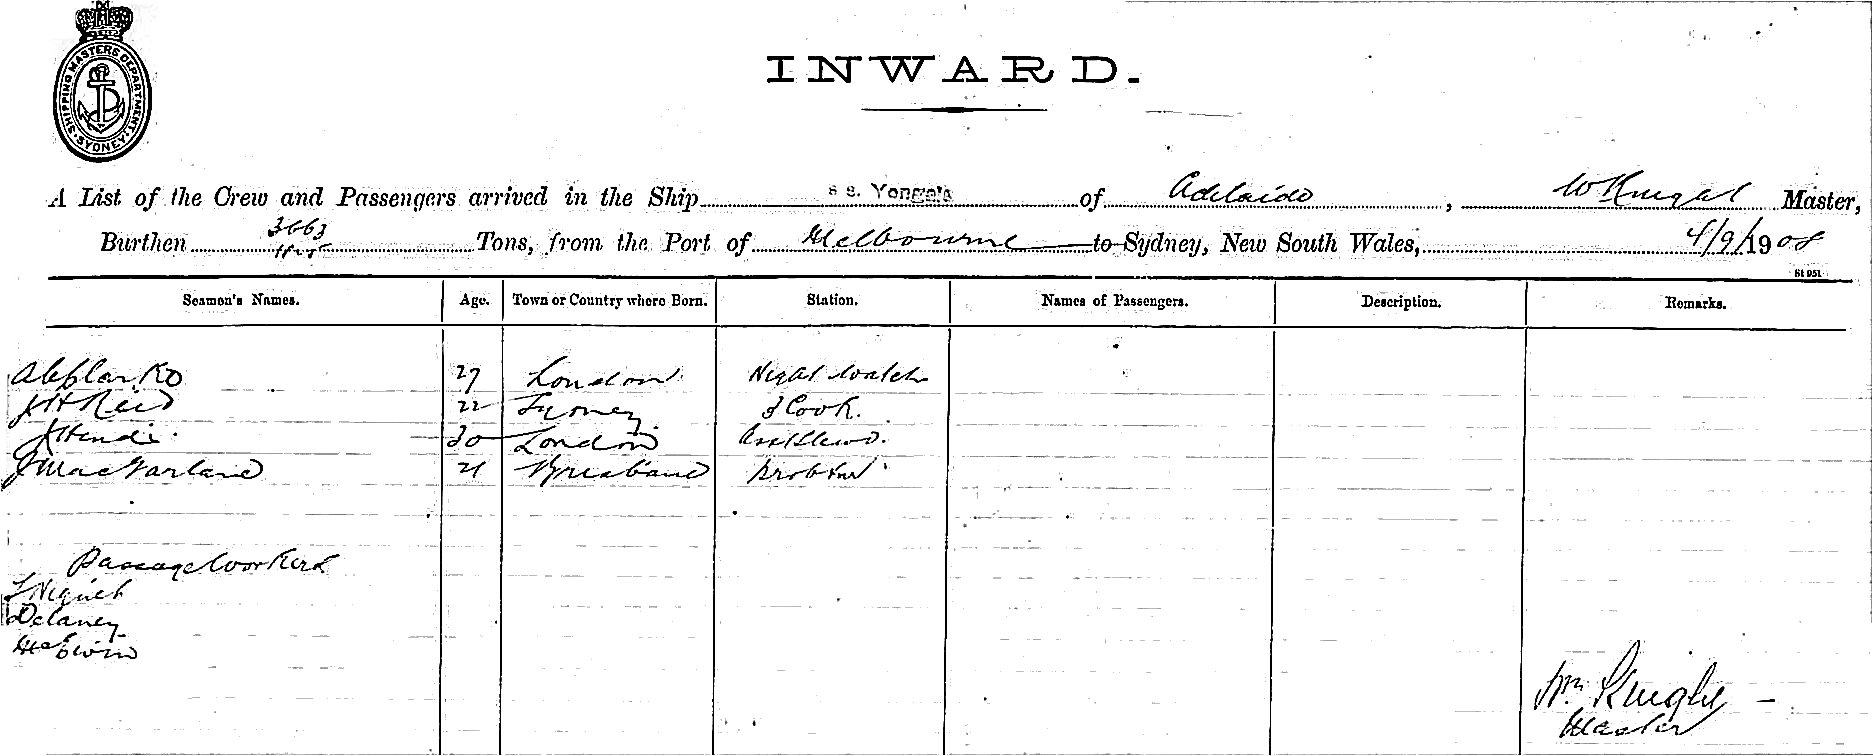 SHIPPING MASTERS DEPARTMENT
SYDNEY
INWARD.
A List of the Crew and Passengers arrived in the Ship s s. Yongala of Adelaide, W Knight Master,
Burthen 3663 Tons, from the Port of Melbourne to Sydney, New South Wales, 4/9/1908
St 951
Seamen's Names. Age. Town or Country where Born. Station. Names of Passengers. Description. Remarks.
27 London Night Watch
J H Reid 22 Sydney 3 Cook.
J Hendi 30 London
J MacFarland 21 Brisbane
Passage Workers
Delaney
McEwin
Wm Knight
Master